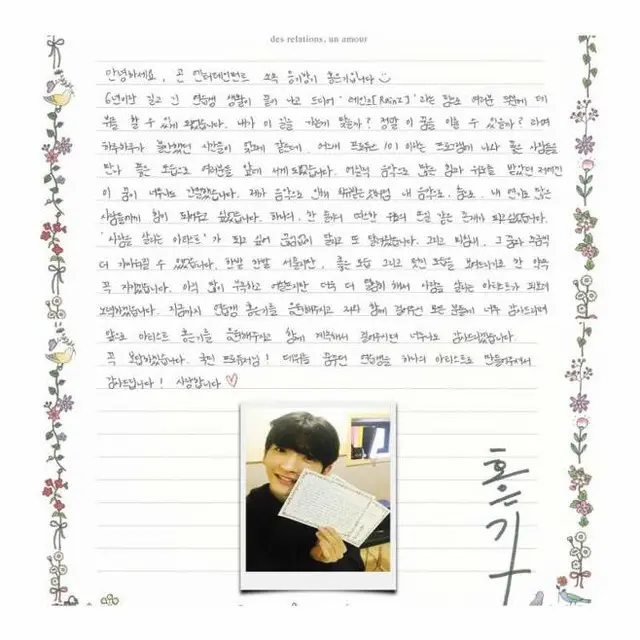 des relations, un amour
안녕하세요, 곤 엔터테인먼트 소속 홍은기입니다
6년이란 길고 긴 연습생 생활이 끝이 나고 드디어 '레인즈[RAINZ]' 라는 팀으로 여러분 덕분에 데
뷔를 할 수 있게 되었습니다. 내가 이 길을 가는게 맞을까? 정말 이 꿈을 이룰 수 있을까? 라며
하루하루가 불안했던 시간들이 있던 것 같은데, 프로듀스 101 이라는 프로그램에 나와 좋은 사람들을
만나 좋은 모습으로 여러분들 앞에 서게 되었습니다. 어릴적 음악으로 많은 힘과 위로를 받았던 저에겐
이 꿈이 너무나도 간절했습니다. 제가 음악으로 인해 내 음악으로, 춤으로, 내 연기로 많은
사람들에게 힘이 되어주고 싶었습니다. 하나의, 한 줄기의 따스한 빛 같은 존재가 되고 싶었습니다.
'사람을 살리는 아티스트' 가 되고 싶어 끊임없이 달리고 또 달려왔습니다. 그리고 지금, 그 꿈과 조금씩
더 가까워질 수 있었습니다. 한발 한발 서툴지만, 좋은 모습 그리고 멋진 모습을 보여드리기로 한 약속
꼭 지키겠습니다. 아직 많이 부족하고 어설프지만 더욱 더 열심히 해서 사람을 살리는 아티스트가 되도록
노력하겠습니다. 지금까지 연습생 홍은기를 응원해주시고 저와 함께 걸어주신 모든 분들께 너무 감사드리며
앞으로 아티스트 홍은기를 응원해주시고 함께 계속해서 걸어주시면 너무나도 감사드리겠습니다.
꼭 보답하겠습니다. 국민 프로듀서님! 데뷔를 꿈꾸던 연습생을 하나의 아티스트로 만들어주셔서
감사드립니다! 사랑합니다 ♡
홍은기